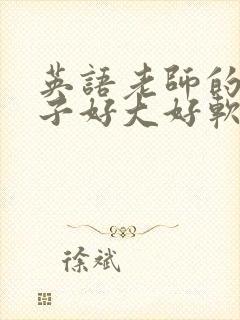 英語老師的
子好大好軟
徐斌